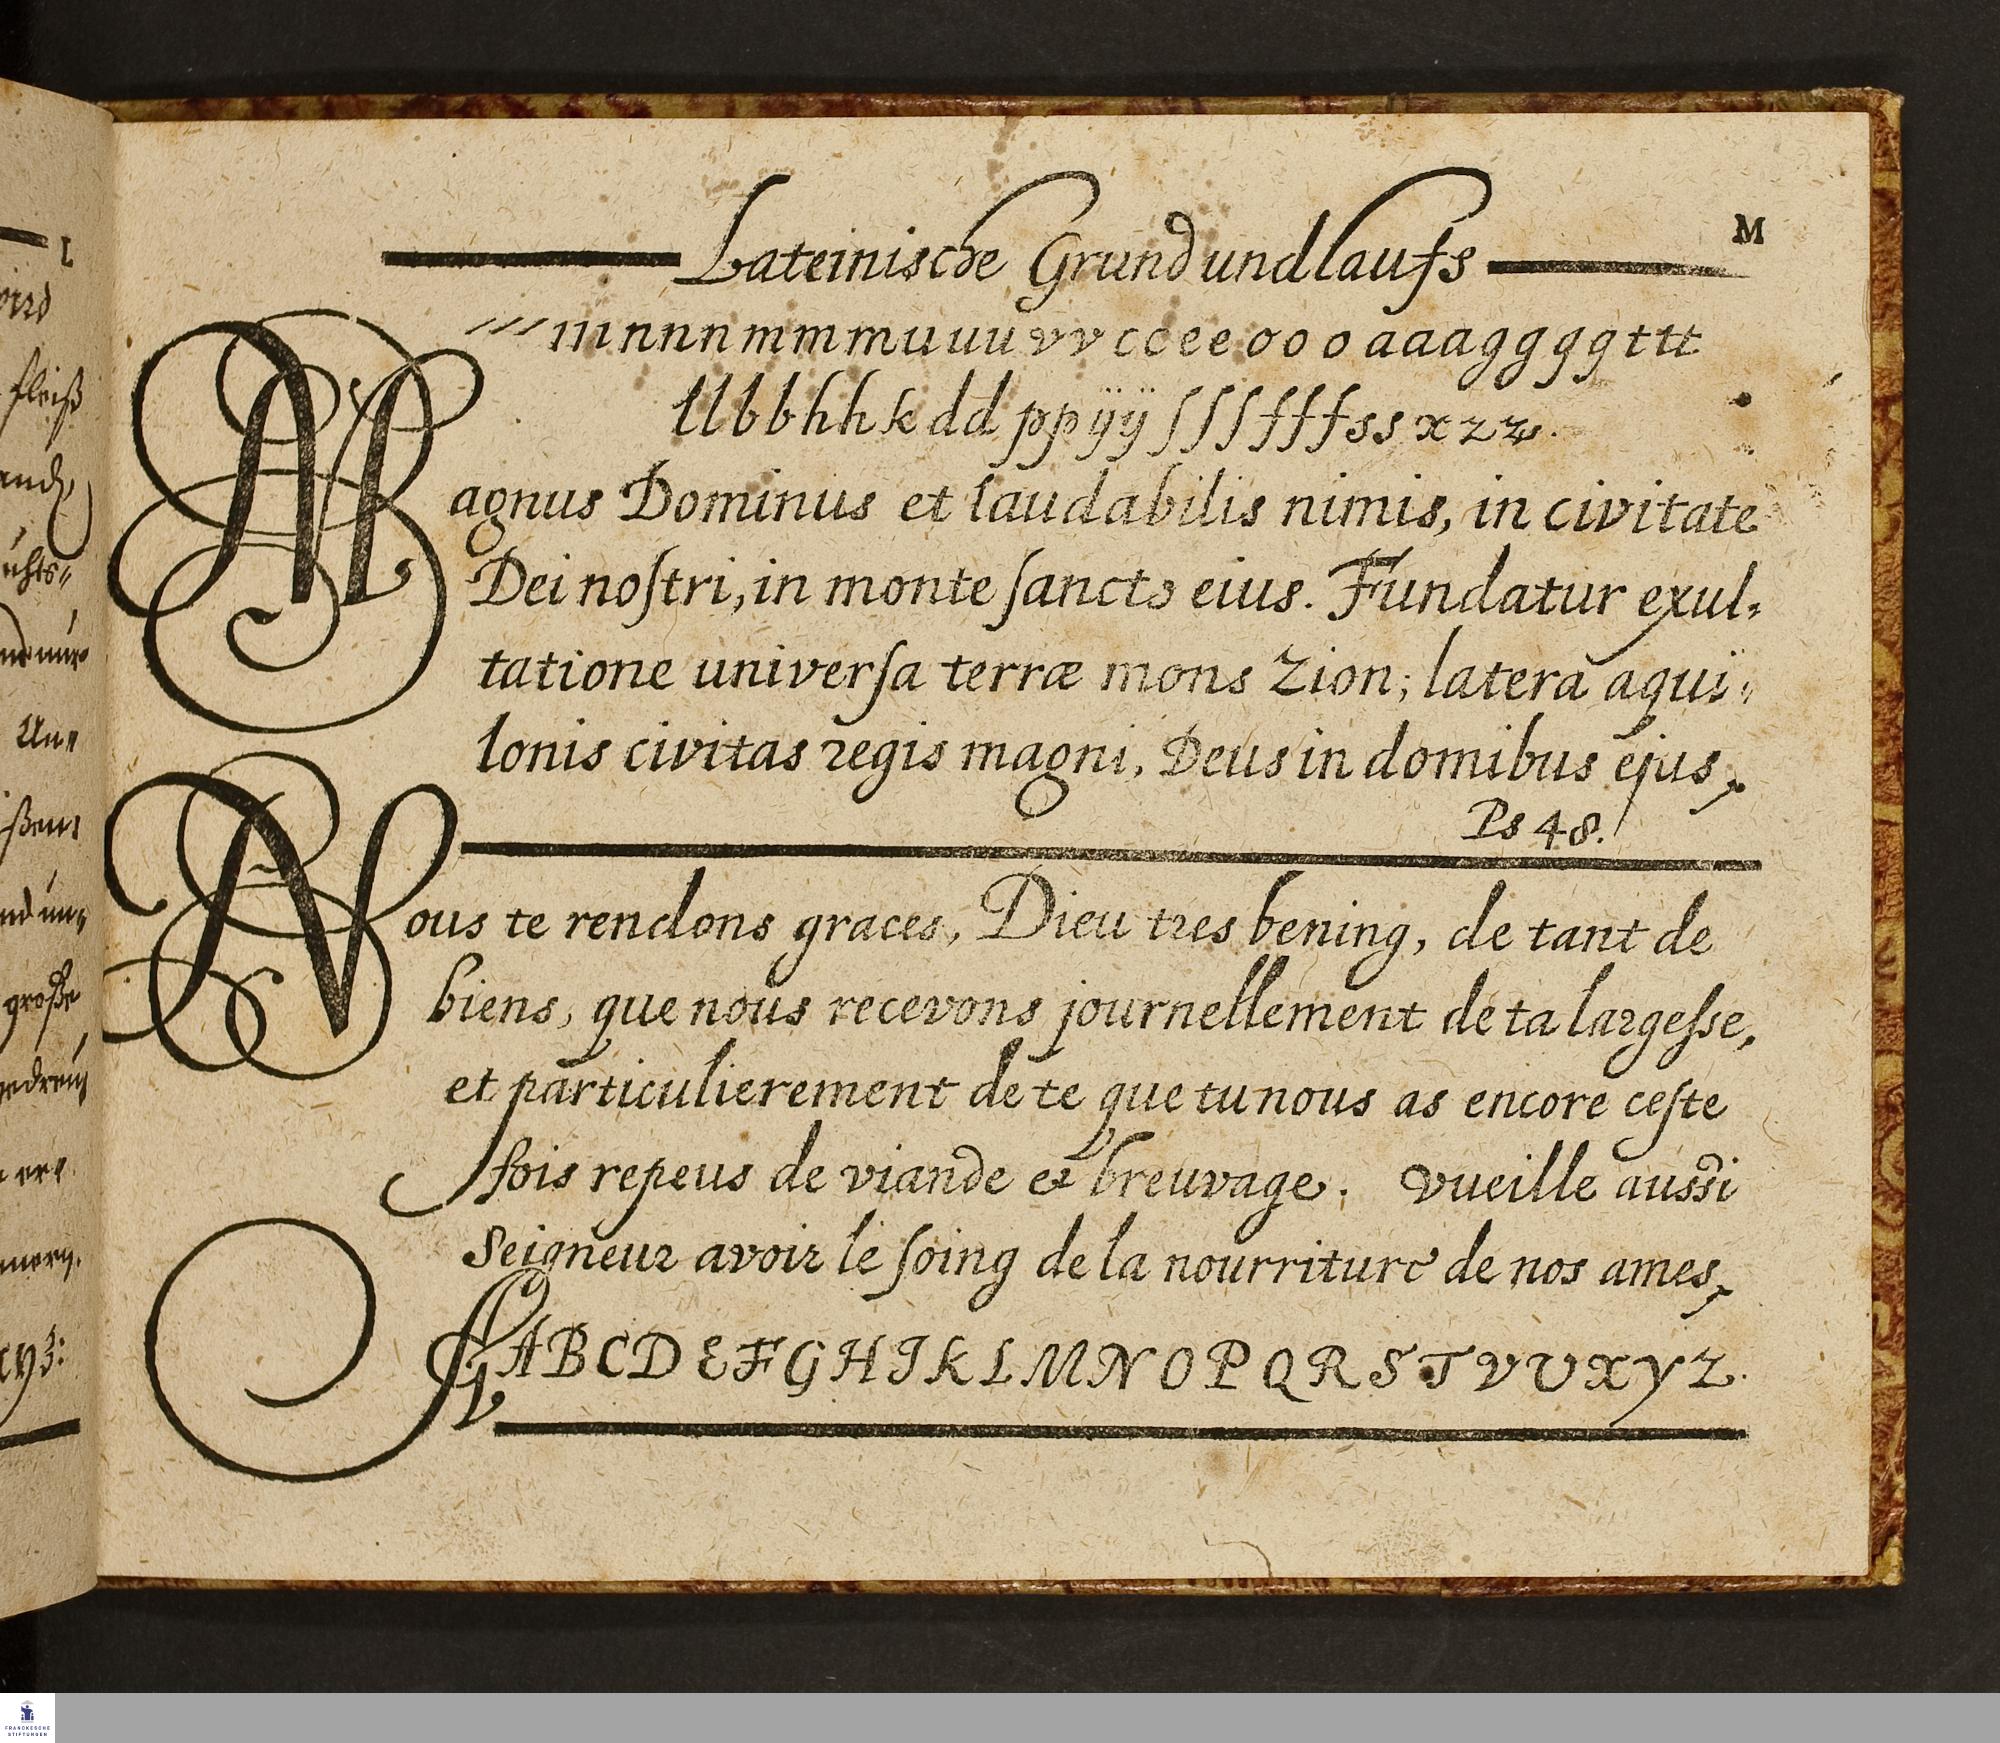 Lateinische Grund und laufs
M
ııınnnnmmmuuuvvcceeoooaaaggggttt
llbbhhkddppÿÿſſſfffssxzz.
Magnus Dominus et laudabilis nimis, in civitate
Dei noſtri, in monte ſancto eius. Fundatur exul⸗
tatione univerſa terræ mons Zion; latera aqui⸗
lonis civitas regis magni, Deus in domibus ejus,
Ps 48.
Nous te rendons graces, Dieu tres bening, de tant de
biens, que nous recevons journellement de ta largeſse,
et particulierement de te que tu nous as encore ceſte
fois repeus de viande et breuvage. Vueille aussi
Seigneur avoir le ſoing de la nourriture de nos ames,
ABCDEFGHIKLMNOPQRSTVUXYZ.
L
fleiß
Un⸗
große
FRANCKESCHE
STIFTUNGEN